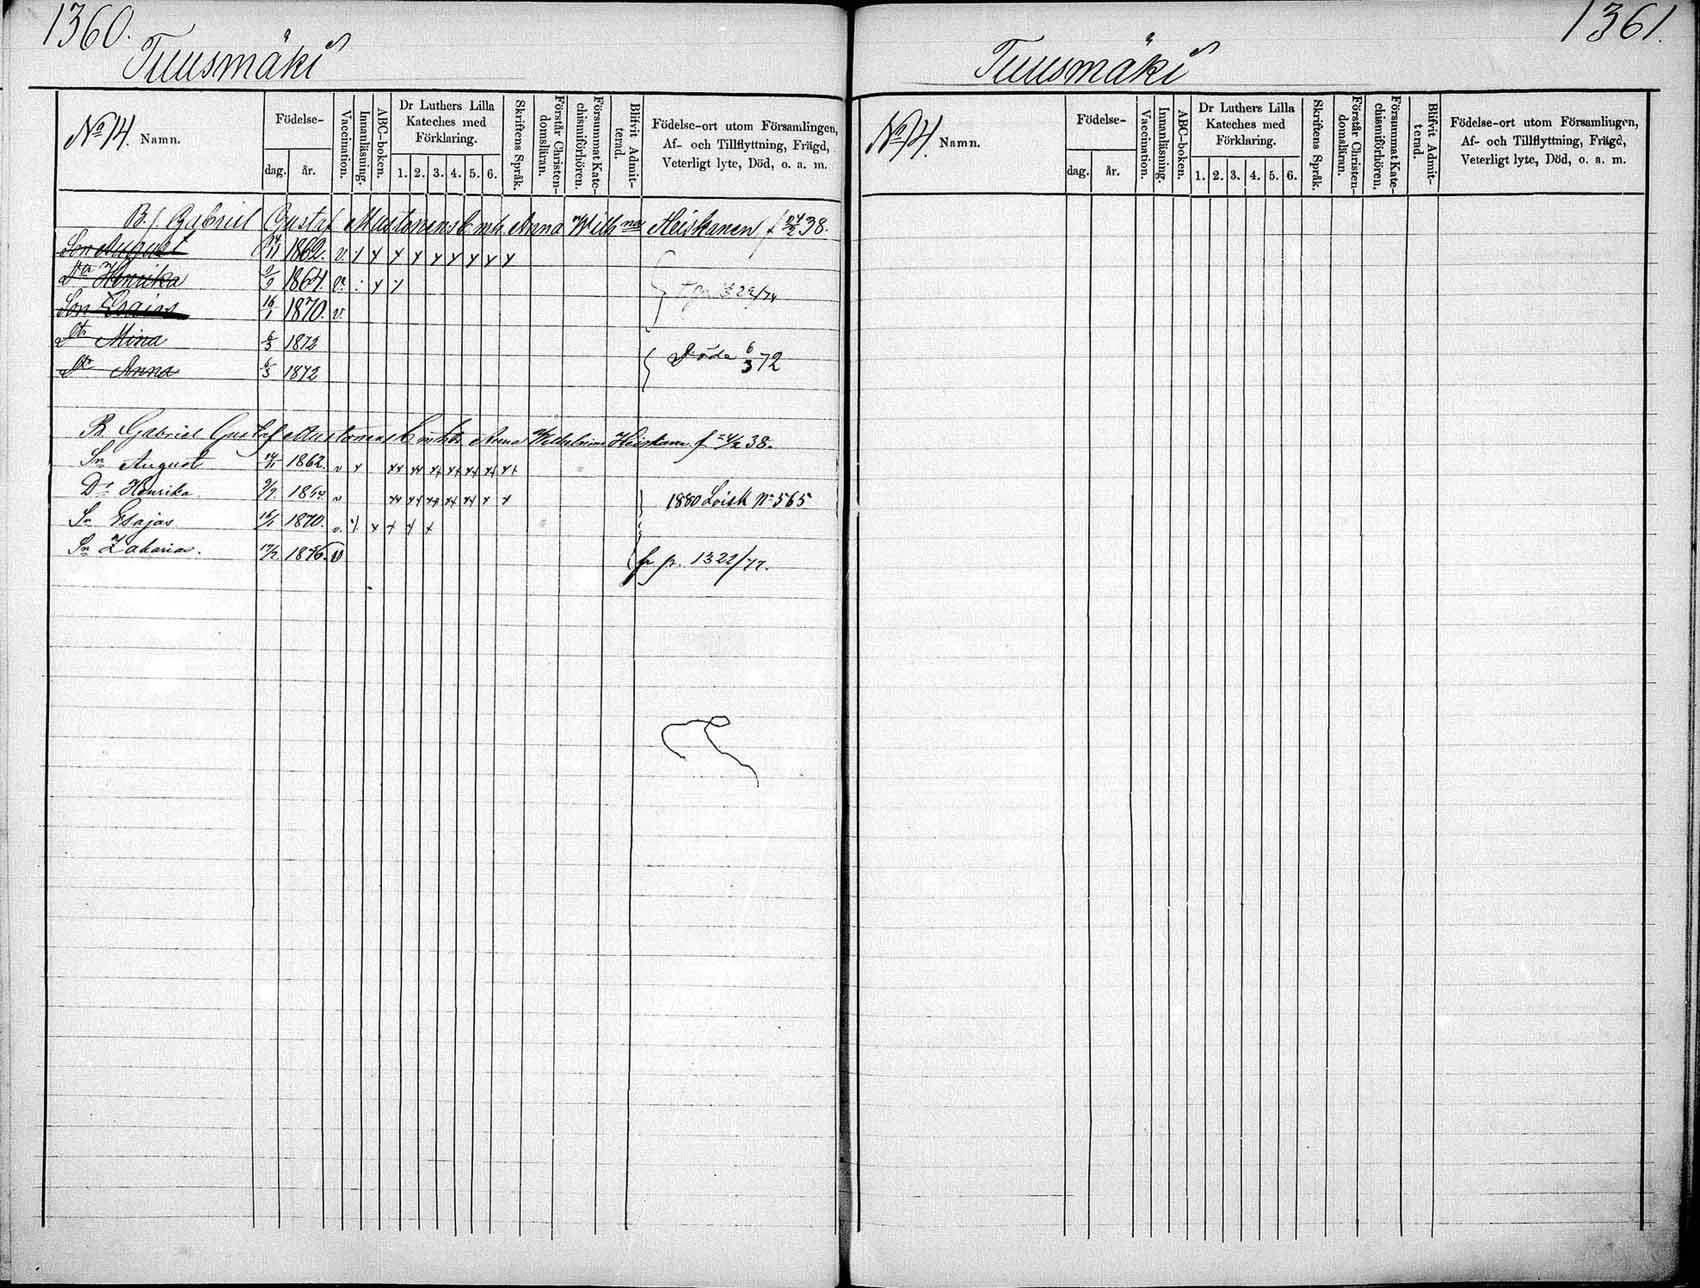 1360.
Tuusmäki
No 14. Namn.
Födelse-
dag. år.
Vaccination.
Innanläsning.
ABC-boken.
Dr Luthers Lilla
Kateches med
Förklaring.
1. 2. 3. 4. 5. 6.
Skriftens Språk.
Förstår Christen-
domsläran.
Försummat Kate-
chismiförhören.
Blifvit Admit-
terad.
Födelse-ort utom Församlingen,
Af- och Tillflyttning, Frägd,
Veterligt lyte, Död, o. a. m.
B. Gabriel Gustaf Mustonens Anna Wilhna Heiskanen f 24/2 38.
Son August 1862. v. / x x x x x x x x
Henrika 1864. v. x x
Son Esaias 16/1 1870. v.
Dr Mina 6/3 1872
Dr Anna 6/3 1872
Döda 6/3 72
B Gabriel Gustaf Mustonens Anna Wilhelmina Heiskan. f 24/2 38.
Sn August 1862. v
Dr Henrika 1864. v
1880 Loisk No 565
Sn Esajas 16/1 1870. v.
Sn Zakarias. 1876. v
fr p. 1322/77.
1361.
Tuusmäki
No 14. Namn.
Födelse-
dag. år.
Vaccination.
Innanläsning.
ABC-boken.
Dr Luthers Lilla
Kateches med
Förklaring.
1. 2. 3. 4. 5. 6.
Skriftens Språk.
Förstår Christen-
domsläran.
Försummat Kate-
chismiförhören.
Blifvit Admit-
terad.
Födelse-ort utom Församlingen,
Af- och Tillflyttning, Frägd,
Veterligt lyte, Död, o. a. m.